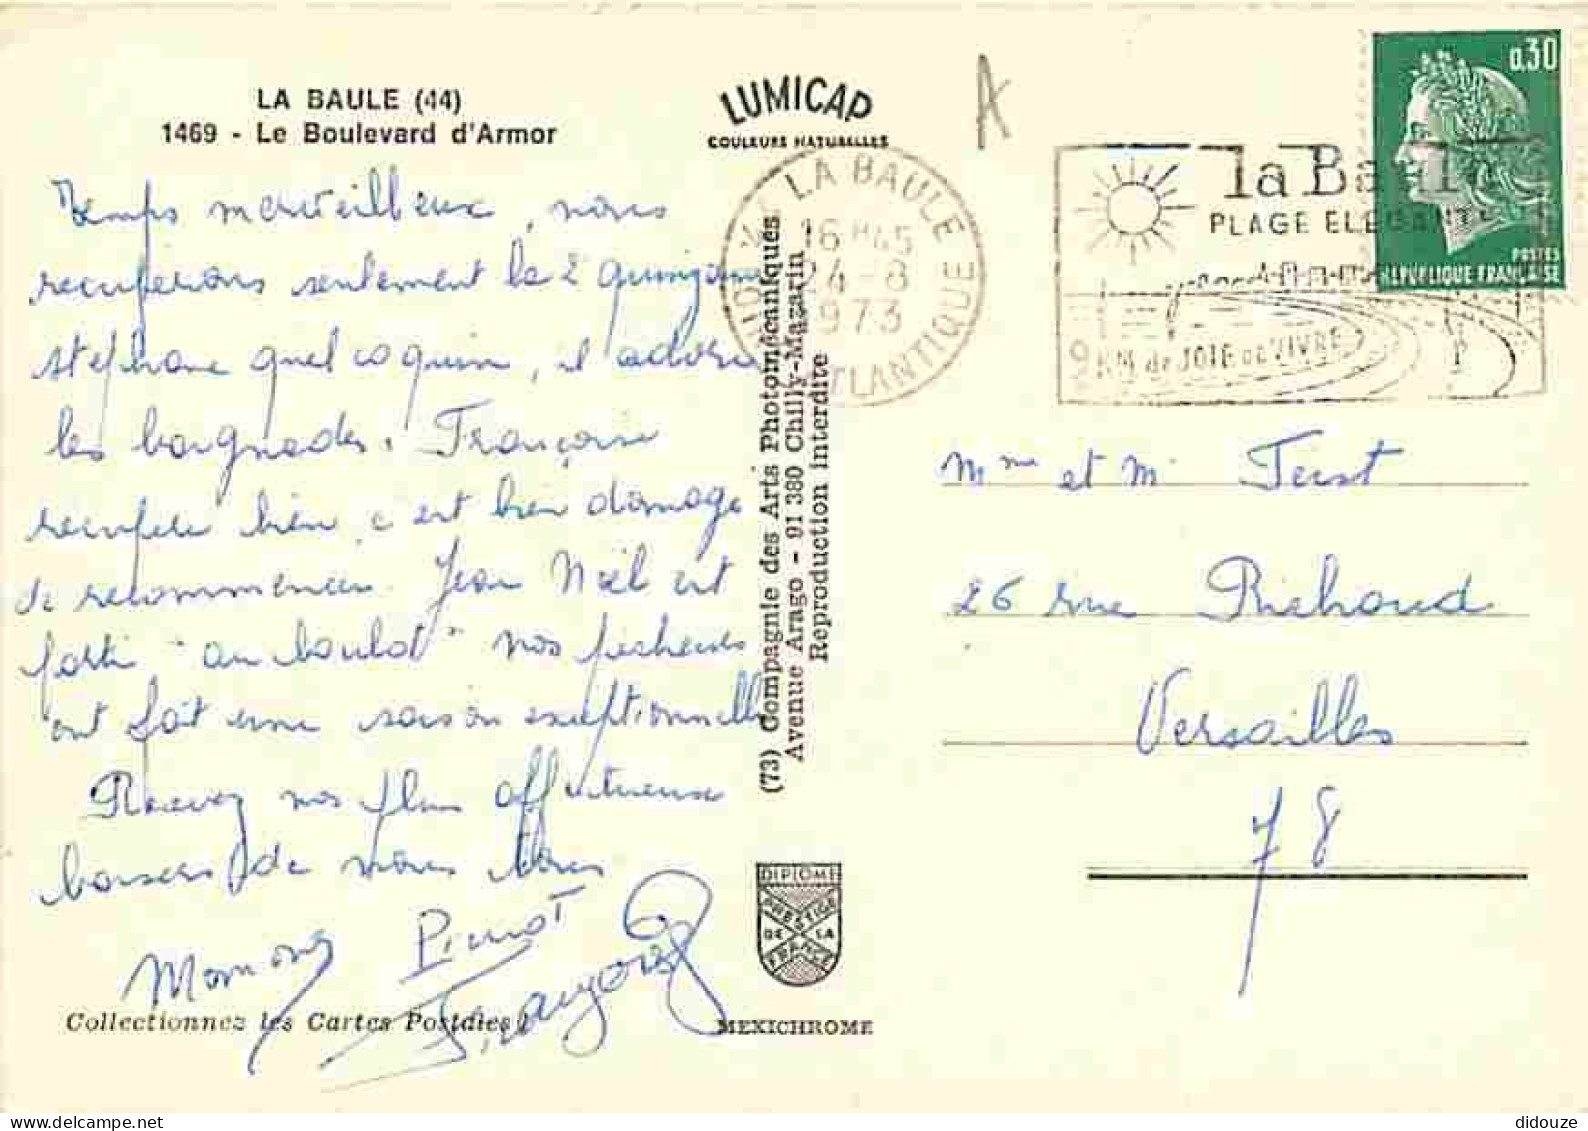 LA BAULE (44)
1469 - Le Boulevard d'Armor
LUMICAP
COULEURS NATURELLES
A
LA BAULE
16 H45
24-8
1973
LOIRE ATLANTIQUE
la Baule
PLAGE ELEGANTE
9 KM de JOIE DE VIVRE
0,30
POSTES
REPUBLIQUE FRANCAISE
Temps merveilleux, nous
recuperons seulement la 2e quinzaine
stephane quel coquin, il adore
les baignades. Françoise
recupere bien c'est bien domage
de recommencer. Jean Noël est
parti "au boulot" nos pecheurs
ont fait une saison exceptionnelle
Recevez nos plus affectueux
baisers de nous tous
Maman Pierrot
Françoise
Collectionnez les Cartes Postales !
(73) Compagnie des Arts Photomécaniques
Avenue Arago - 91 380 Chilly-Mazarin
Reproduction interdite
DIPLOME
PRESTIGE
DE LA
FRANCE
MEXICHROME
Mme et M.
26 rue Richaud
Versailles
78
didouze